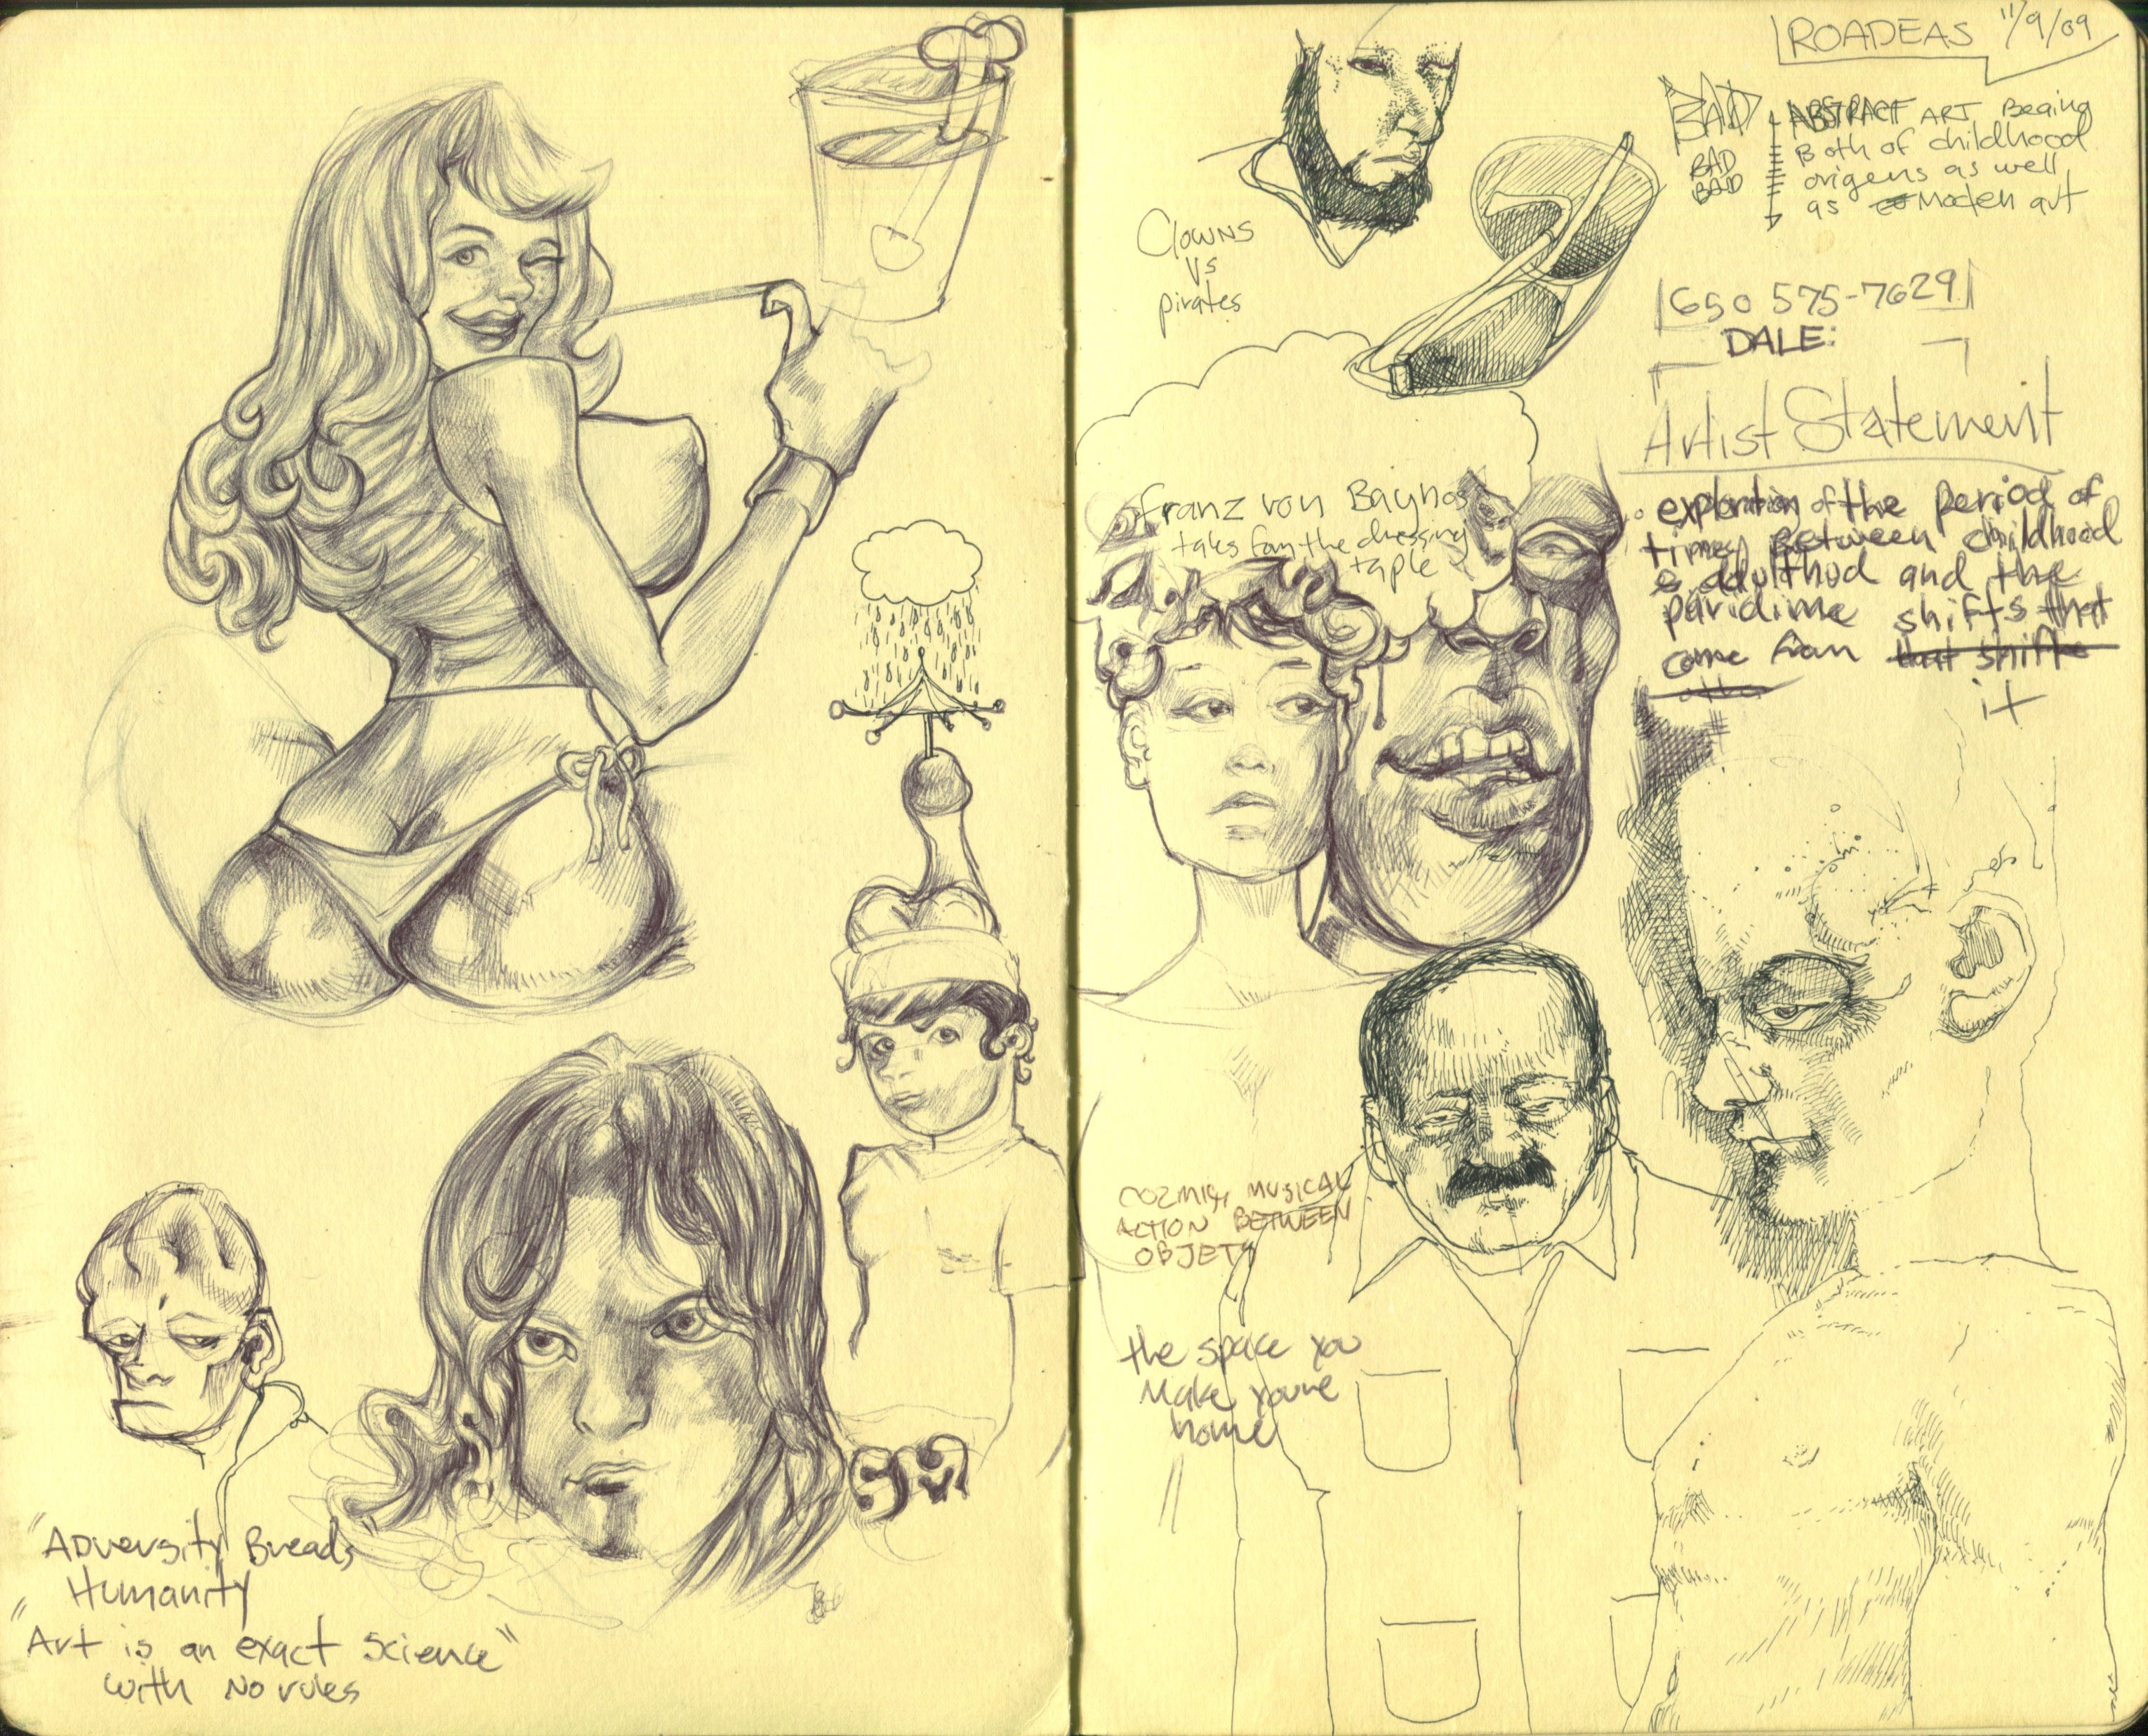 "Adversity Breads"
Humanity
"Art is an exact Science"
with No rules
ROADEAS 11/9/09
BAD
BAD
BAD
ABSTRACT ART Being
Both of childhood
origens as well
as Moden art
Clowns
vs
pirates
650 575-7629
DALE:
Artist Statement
exploration of the period of
time Between childhood
& adulthod and the
paridime shifts that
come from that shift
it
franz von Bayros
tales fom the dressing
taple
COZMIC, MUSICAL
ACTION BETWEEN
OBJETS
the space you
Make youre
home